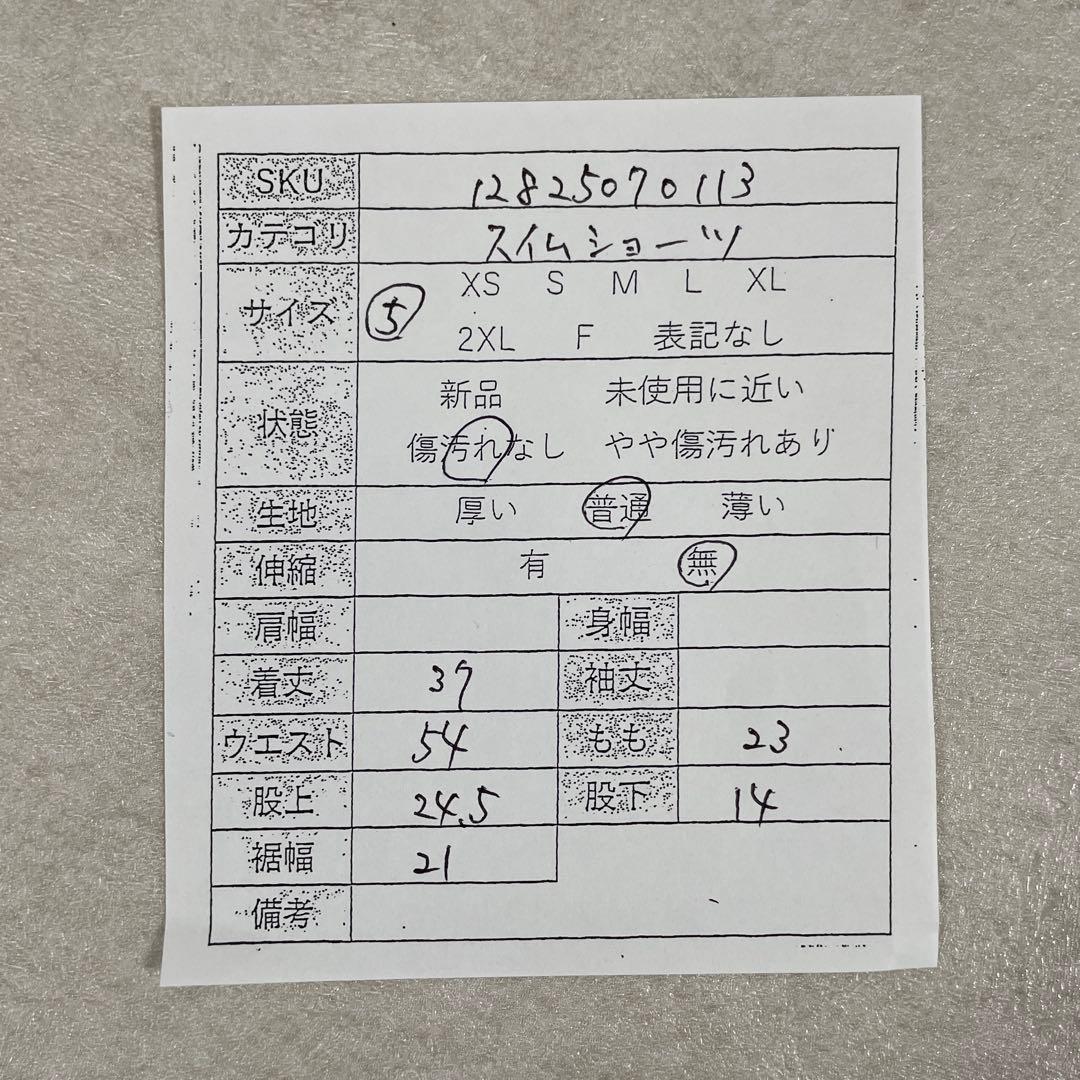 SKU 12825070113
カテゴリ スイムショーツ
XS S M L XL
サイズ 5
2XL F 表記なし
新品 未使用に近い
状態
傷汚れなし やや傷汚れあり
生地 厚い 普通 薄い
伸縮 有 無
肩幅 身幅
着丈 37 袖丈
ウエスト 54 もも 23
股上 24.5 股下 14
裾幅 21
備考